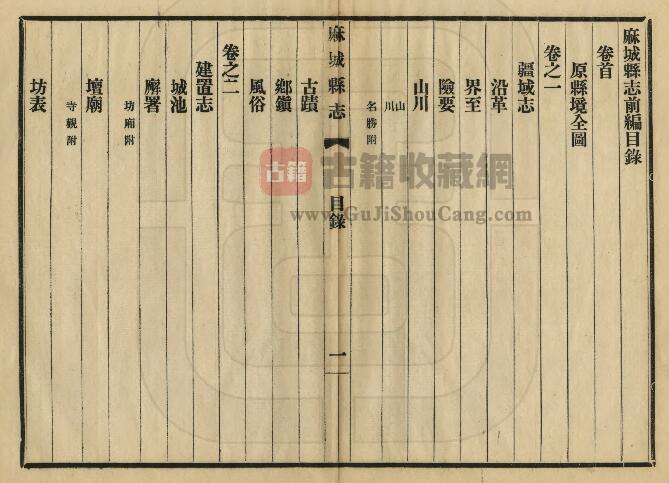 麻城縣志前編目錄
卷首
原縣境全圖
卷之一
疆域志
沿革
界至
險要
山川
山川
名勝附
麻城縣志
目錄
一
古蹟
鄉鎮
風俗
卷之二
建置志
城池
廨署
坊廂附
壇廟
寺觀附
坊表
古籍
古籍收藏網
www.GuJiShouCang.com